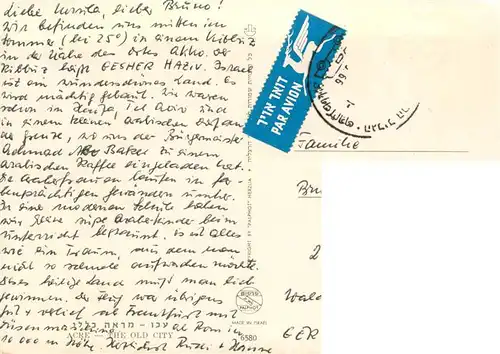 Liebe Ursula, lieber Bruno!
Wir befinden uns mitten im
Sommer (bei 25°) in einem Kibbuz
in der Nähe des Ortes Akko. Der
Kibbuz heißt GESHER HAZIV. Israel
ist ein wunderschönes Land. Es
wird mächtig gebaut. Wir waren
schon in Haifa, Tel Aviv und
in einem kleinen, arabischen Dorf an
der Grenze, wo uns der Bürgermeister
Achmad Abu Baker zu einem
arabischen Kaffee eingeladen hat.
Die Araberfrauen laufen in far-
benprächtigen Gewändern umher.
In einer modernen Schule haben
wir kleine süße Araberkinder beim
Unterricht bestaunt. Es ist alles
wie ein Traum, aus dem man
nicht so schnell aufwachen möchte.
Dieses heilige Land muß man lieb
gewinnen. Der Flug war übrigens
gut + verlief ab Frankfurt mit
Düsenmaschine ab Rom in
10 000 m Höhe. Herzlichst
דואר אויר
PAR AVION
Familie
Br
2
Wald
GER
PALPHOT
MADE IN ISRAEL
6580
עכו - מראה כללי
ACRE - THE OLD CITY